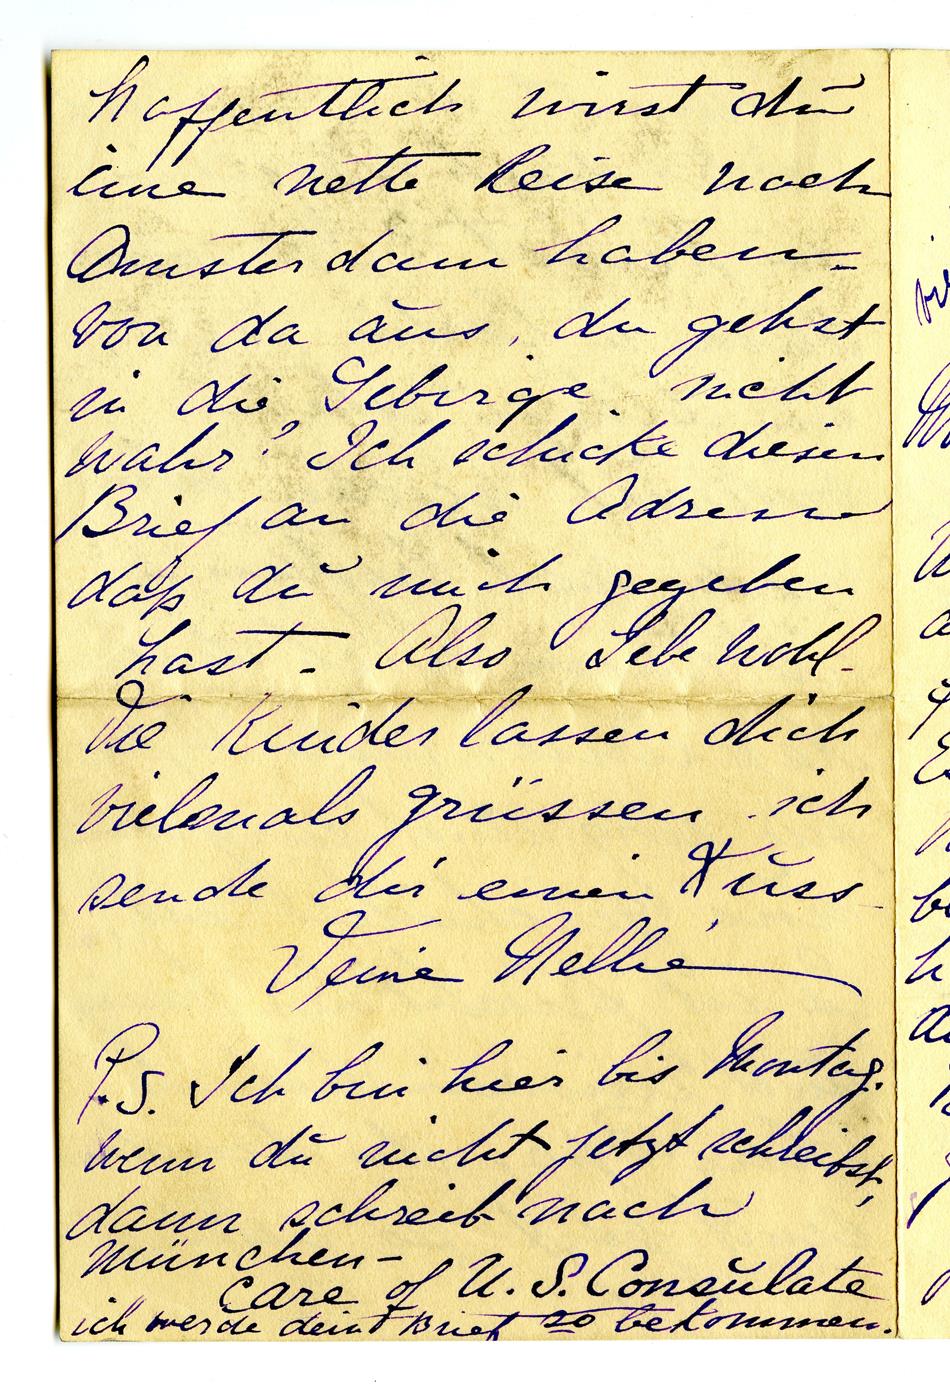 hoffentlich wirst dŭ
eine nette Reise nach
Amsterdam haben –
von da aŭs, du gehst
in die Gebirge nicht
wahr? Ich schicke diesen
Brief an die Adresse
daß dŭ mich gegeben
hast – Also Lebe wohl –
Die Kinder lassen dich
vielemals grüssen. ich
sende dir einen Kŭss –
Deine Nellie
P.S. Ich bin hier bis Montag.
wenn dŭ nicht jetzt schreibst,
dann schreib nach
München –
care of U.S. Consŭlate
ich werde deint Brief so bekommen.